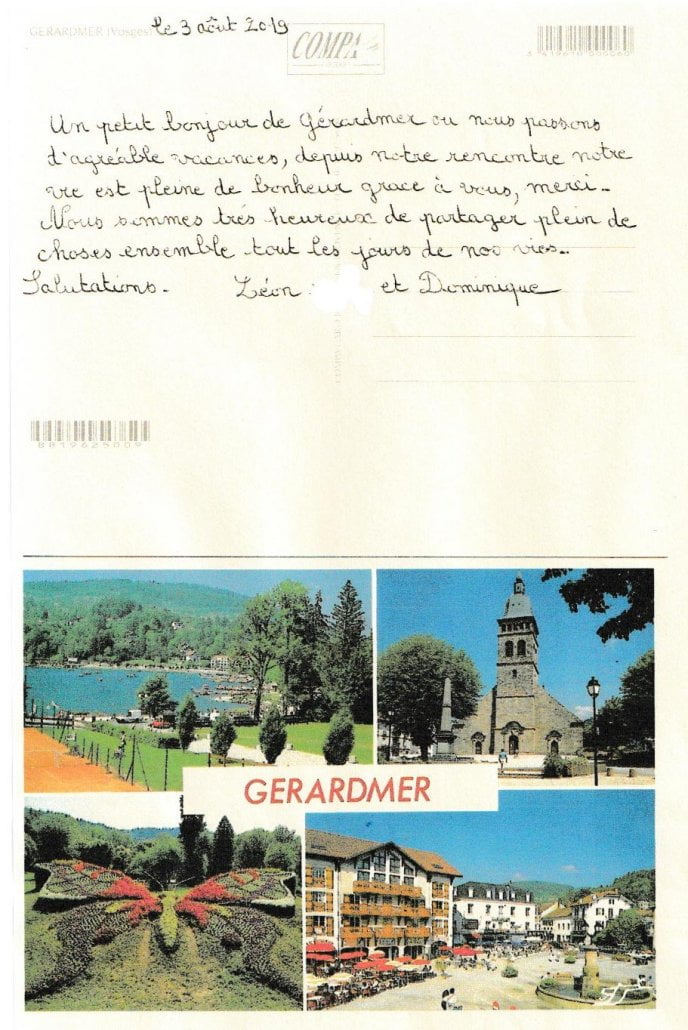 GERARDMER (Vosges) le 3 août 2019
COMPA
Un petit bonjour de Gérardmer ou nous passons
d'agréable vacances, depuis notre rencontre notre
vie est pleine de bonheur grace à vous, merci.
Nous sommes trés heureux de partager plein de
choses ensemble tout les jours de nos vies.
Salutations. Léon et Dominique
8819625009
GERARDMER